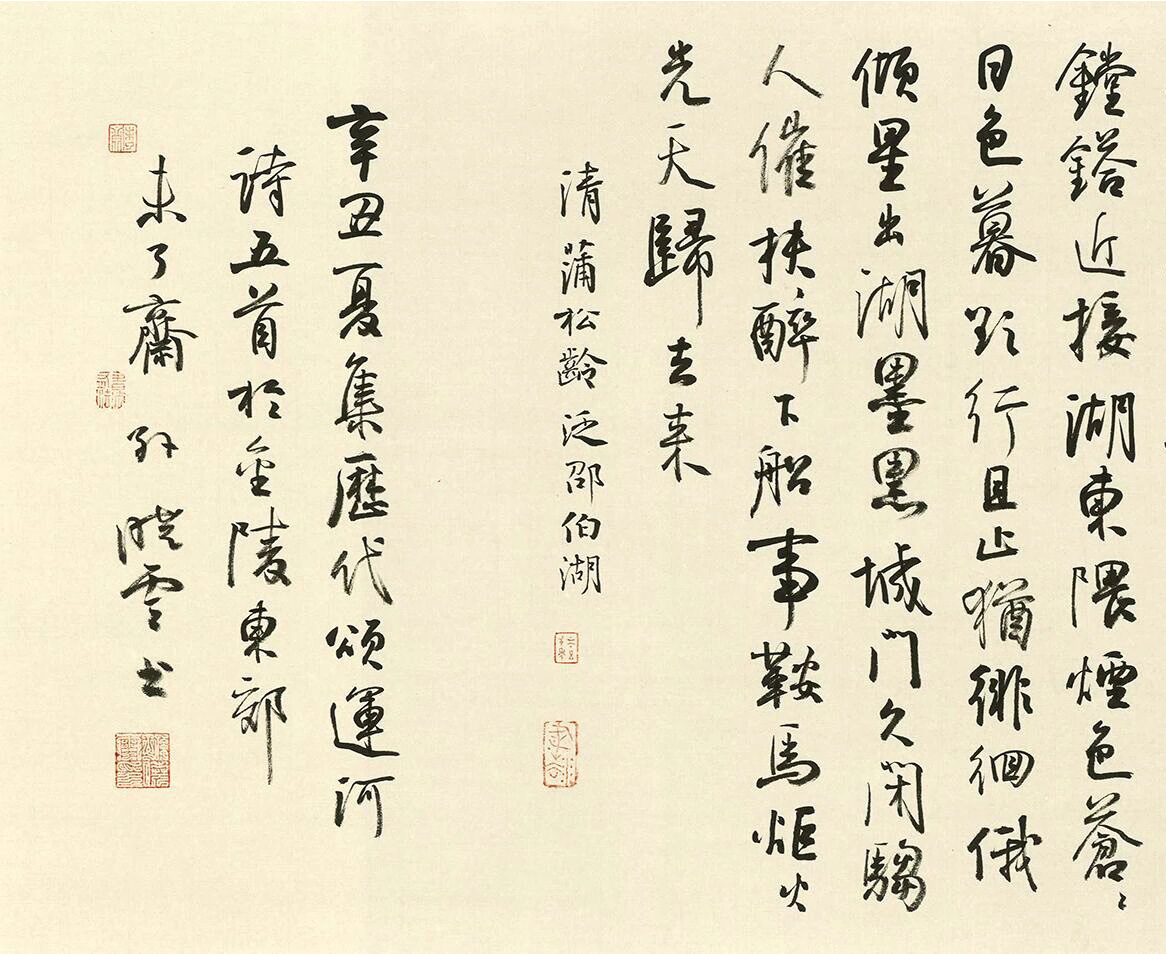 鏜鎝近接湖東隈煙色蒼〻
日色暮欵行且止猶徘徊俄
傾星出湖墨黑城門久閑騶
人催扶醉下船事鞍馬炬火
先天歸去来
清蒲松齡泛邵伯湖
辛丑夏集歷代頌運河
詩五首於金陵東郊
未了齋孫曉雲書